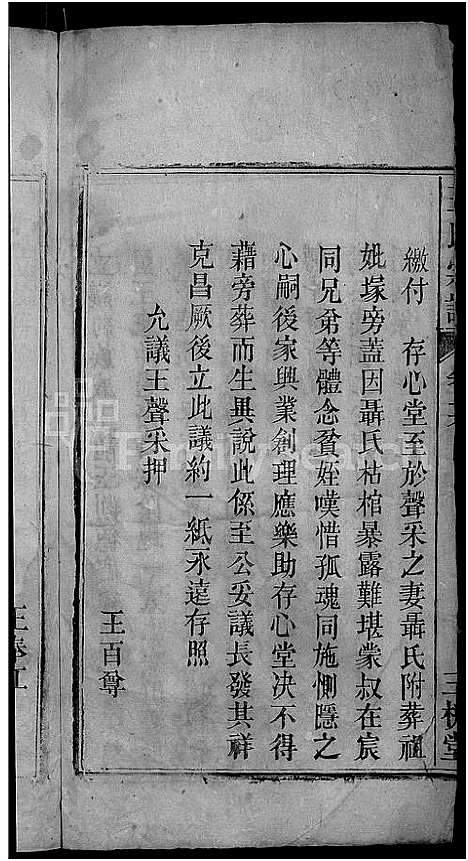 繳付　存心堂至於聲采之妻聶氏附葬祖
妣塚旁蓋因聶氏枯棺暴露難堪蒙叔在宸
同兄弟等體念貧姪嘆惜孤魂同施惻隱之
心嗣後家興業創理應樂助存心堂决不得
藉旁葬而生異說此係至公妥議長發其祥
克昌厥後立此議約一紙永遠存照
允議王聲采押
王百尊